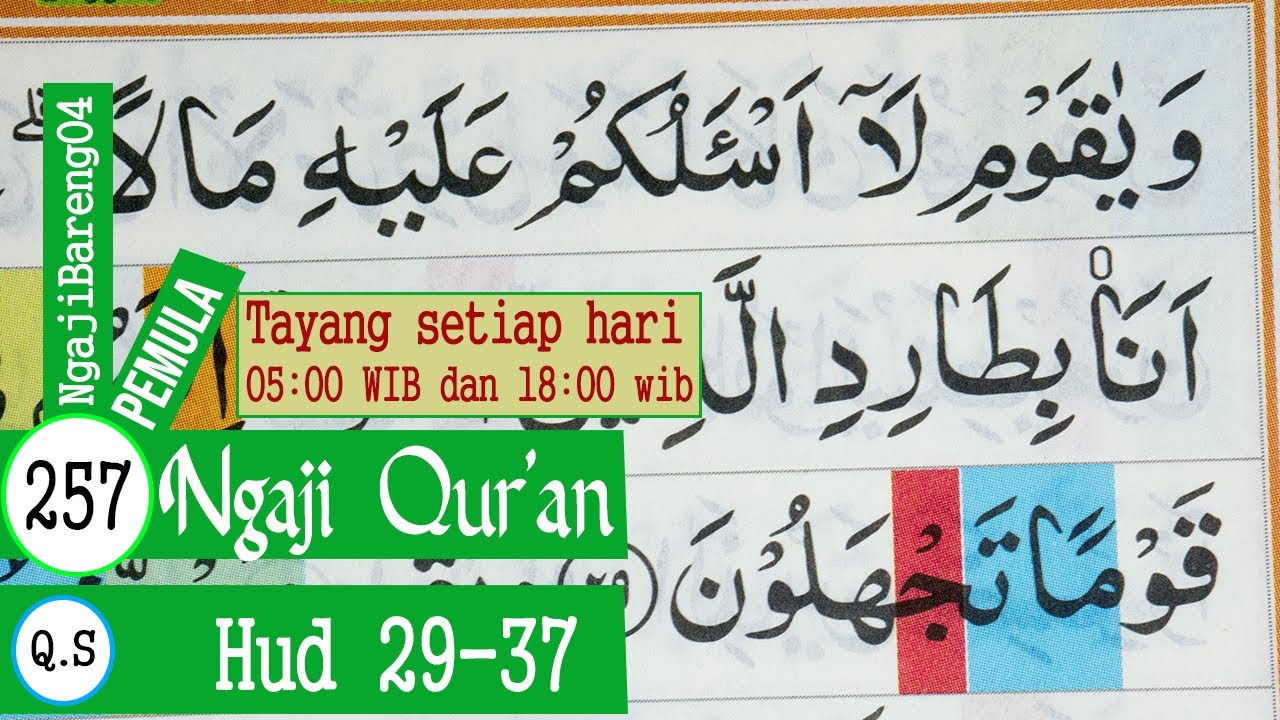 وَيٰقَوْمِ لَآ اَسْـَٔلُكُمْ عَلَيْهِ مَالًا ۗ
اَنَا۠ بِطَارِدِ
قَوْمًا تَجْهَلُوْنَ ﴿٢٩﴾
NgajiBareng04
PEMULA
Tayang setiap hari
05:00 WIB dan 18:00 wib
257 Ngaji Qur'an
Q.S Hud 29-37